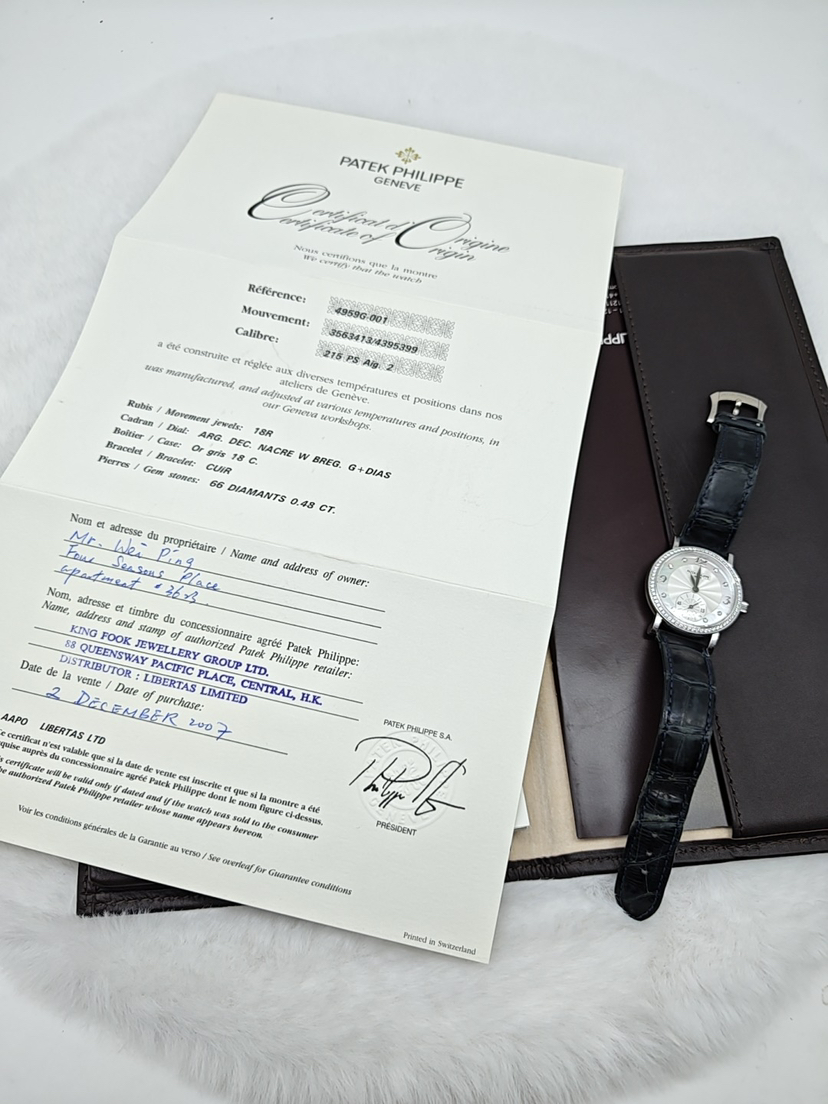 PATEK PHILIPPE
GENEVE
Certificat d'Origine
Certificate of Origin
Nous certifions que la montre
We certify that the watch
Référence:
4959G-001
Mouvement:
3563413/4395399
Calibre:
215 PS Aig. 2
a été construite et réglée aux diverses températures et positions dans nos
ateliers de Genève.
was manufactured, and adjusted at various temperatures and positions, in
our Geneva workshops.
Rubis / Movement jewels: 18R
Cadran / Dial: ARG. DEC. NACRE W BREG. G+DIAS
Boîtier / Case: Or gris 18 C.
Bracelet / Bracelet: CUIR
Pierres / Gem stones: 66 DIAMANTS 0.48 CT.
Nom et adresse du propriétaire / Name and address of owner:
Mr. Wei Ping
Four Seasons Place
apartment
Nom, adresse et timbre du concessionnaire agréé Patek Philippe:
Name, address and stamp of authorized Patek Philippe retailer:
KING FOOK JEWELLERY GROUP LTD.
88 QUEENSWAY PACIFIC PLACE, CENTRAL, H.K.
DISTRIBUTOR : LIBERTAS LIMITED
Date de la vente / Date of purchase:
2 DECEMBER 2007
AAPO LIBERTAS LTD
ce certificat n'est valable que si la date de vente est inscrite et que si la montre a été
quise auprès du concessionnaire agréé Patek Philippe dont le nom figure ci-dessus.
s certificate will be valid only if dated and if the watch was sold to the consumer
he authorized Patek Philippe retailer whose name appears hereon.
PATEK PHILIPPE S.A.
PRÉSIDENT
Voir les conditions générales de la Garantie au verso / See overleaf for Guarantee conditions
Printed in Switzerland